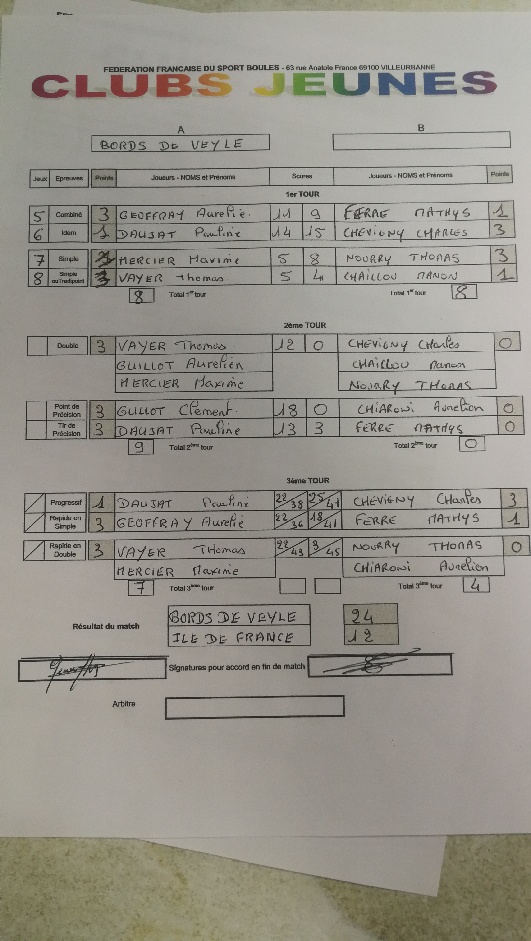 FEDERATION FRANCAISE DU SPORT BOULES - 63 rue Anatole France 69100 VILLEURBANNE
CLUBS JEUNES
A B
BORDS DE VEYLE
Jeux Epreuves Points Joueurs - NOMS et Prénoms Scores Joueurs - NOMS et Prénoms Points
1er TOUR
5 Combiné 3 GEOFFRAY Aurelie 11 9 FERRE MATHYS 1
6 Idem 1 DAUJAT Pauline 14 15 CHEVIGNY CHARLES 3
7 Simple MERCIER Maxime 5 8 NOURRY THOMAS 3
8 Simple ou Tradipoint 3 VAYER Thomas 5 4 CHAILLOU MANON 1
8 Total 1er tour Total 1er tour 8
2ème TOUR
Double 3 VAYER Thomas 12 0 CHEVIGNY Charles 0
GUILLOT Aurelien CHAILLOU Manon
MERCIER Maxime NOURRY THOMAS
Point de Précision 3 GUILLOT Clement 18 0 CHIAROWI Aurelien 0
Tir de Précision 3 DAUJAT Pauline 13 3 FERRE MATHYS 0
9 Total 2ème tour Total 2ème tour 0
3ème TOUR
Progressif 1 DAUJAT Pauline 22/38 25/41 CHEVIGNY Charles 3
Rapide en Simple 3 GEOFFRAY Aurelie 22/36 18/41 FERRE MATHYS 1
Rapide en Double 3 VAYER THomas 22/43 9/45 NOURRY THOMAS 0
MERCIER Maxime CHIAROWI Aurelien
7 Total 3ème tour Total 3ème tour 4
Résultat du match BORDS DE VEYLE 24
ILE DE FRANCE 12
Signatures pour accord en fin de match
Arbitre